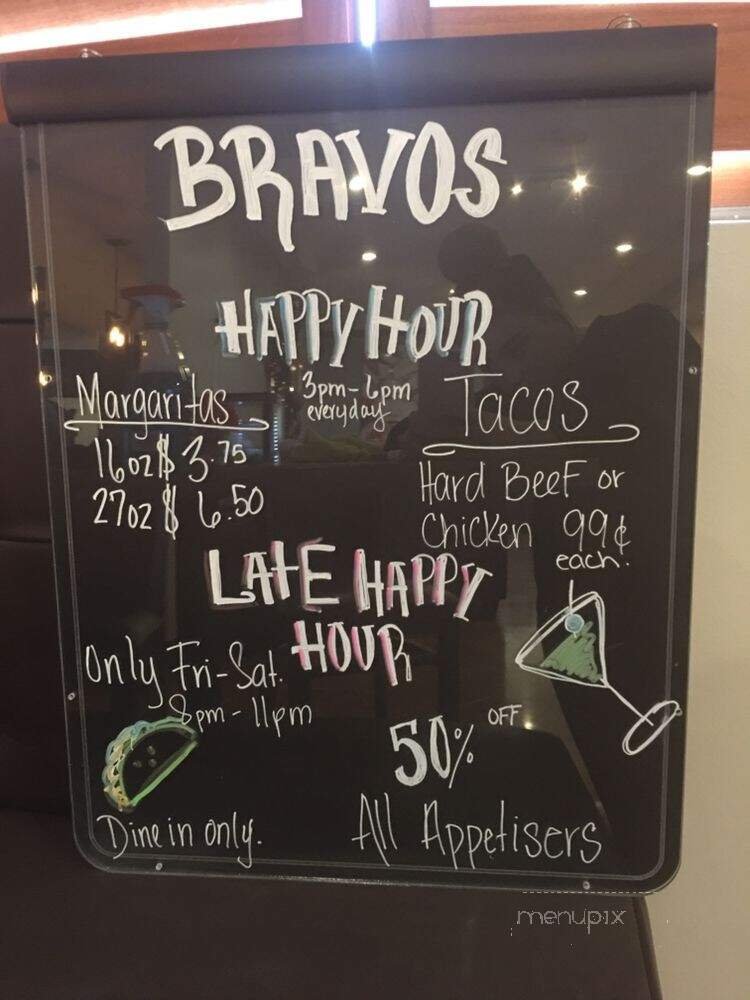 BRAVOS
HAPPY HOUR
3pm-6pm
everyday
Margaritas
16oz $3.75
27oz $6.50
Tacos
Hard Beef or
Chicken 99¢
each.
LATE HAPPY
HOUR
Only Fri-Sat.
8pm-11pm
50% OFF
All Appetisers
Dine in only.
menupix